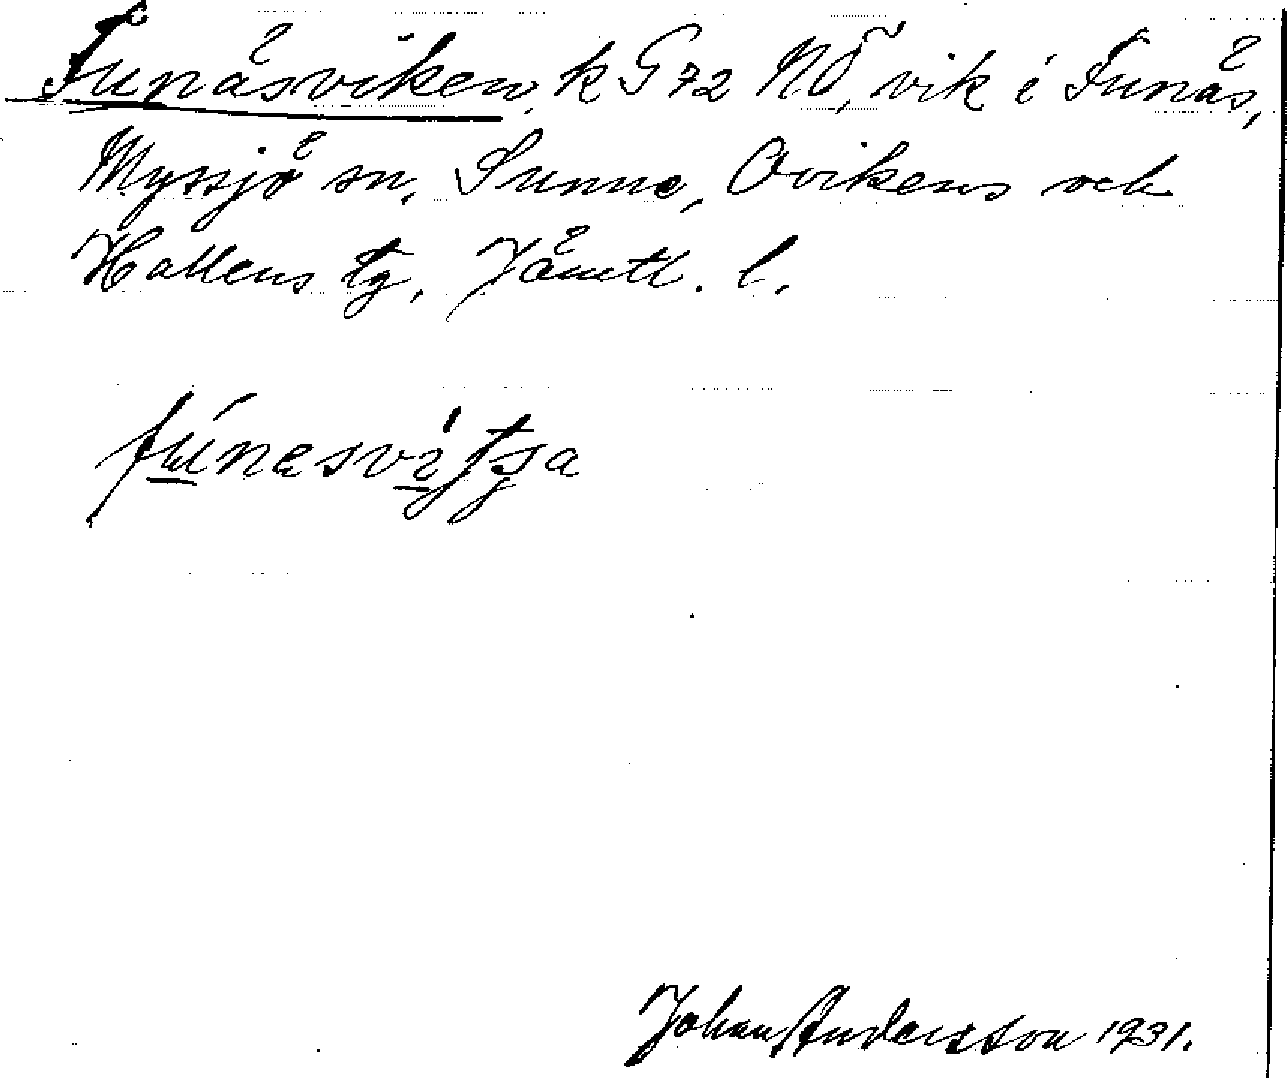 Funäsviken, k G 72 NÖ, vik i Funäs,
Myssjö sn, Sunne, Ovikens och
Hallens tg, Jämtl. l.
fúnesvítsa
Johan Andersson 1931.